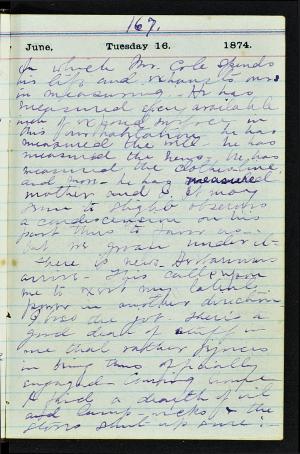 167.
June, Tuesday 16. 1874.
In which Mr. Cole spends
his life and exhausts ours
in measuring. He has
measured every available
rod of ground in
this habitation he has
measured the mill he has
measured the he has
measured the
and he has measured
mother and I it may
seem to slight observers
a condescension on his
part thus to favor us
but we groan under it
There is news
arrive. This calls upon
me to exert my latent
power in another direction
the job. There's a
good deal of stuff in
me that rather rejoices
in being thus officially
engaged. Coming home
I find a dearth of oil
and lamp-wicks & the
stores shut up sure!